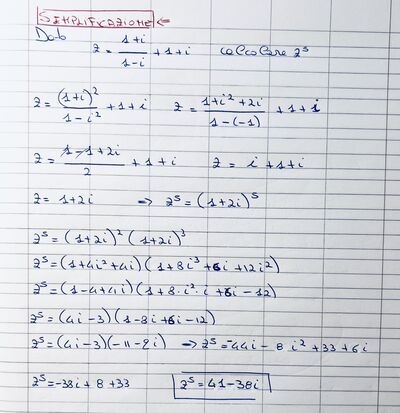 SEMPLIFICAZIONE ←
Dato z = (1+i)/(1-i) + 1 + i calcolare z⁵
z = (1+i)²/(1-i²) + 1 + i z = (1+i²+2i)/(1-(-1)) + 1 + i
z = (1-1+2i)/2 + 1 + i z = i + 1 + i
z = 1+2i → z⁵ = (1+2i)⁵
z⁵ = (1+2i)² (1+2i)³
z⁵ = (1+4i²+4i) (1+8i³+6i+12i²)
z⁵ = (1-4+4i) (1+8·i²·i+6i-12)
z⁵ = (4i-3) (1-8i+6i-12)
z⁵ = (4i-3)(-11-2i) → z⁵ = -44i - 8i² + 33 + 6i
z⁵ = -38i + 8 + 33 z⁵ = 41-38i